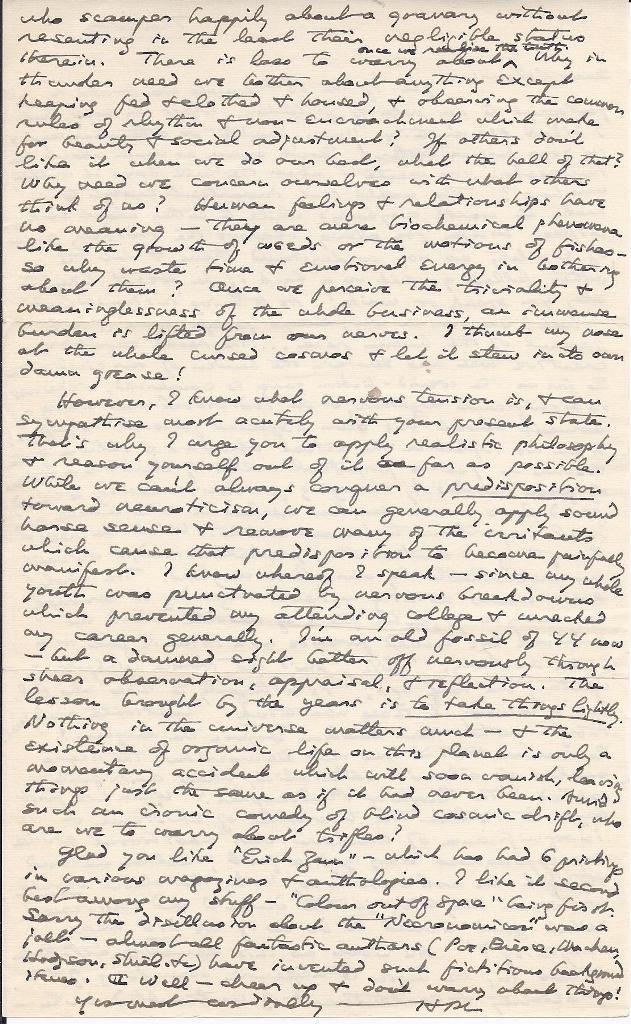 who scamper happily about a granary without
resenting in the least their negligible status
therein. There is less to worry about once we realise the truth. Why in
thunder need we bother about anything except
keeping fed & clothed & housed, & observing the common
rules of rhythm & non-encroachment which make
for beauty & social adjustment? If others don't
like it when we do our best, what the hell of that?
Why need we concern ourselves with what others
think of us? Human feelings & relationships have
no meaning — they are mere biochemical phenomena
like the growth of weeds or the motions of fishes —
so why waste time & emotional energy in bothering
about them? Once we perceive the triviality &
meaninglessness of the whole business, an immense
burden is lifted from our nerves. I thumb my nose
at the whole cursed cosmos & let it stew in its own
damn grease!
However, I know what nervous tension is, & can
sympathise most acutely with your present state.
That's why I urge you to apply realistic philosophy
& reason yourself out of it as far as possible.
While we can't always conquer a predisposition
toward neuroticism, we can generally apply sound
horse sense & remove many of the irritants
which cause that predisposition to become painfully
manifest. I know whereof I speak — since my whole
youth was punctuated by nervous breakdowns
which prevented my attending college & wrecked
my career generally. I'm an old fossil of 44 now
— but a damned sight better off nervously through
sheer observation, appraisal, & reflection. The
lesson brought by the years is to take things lightly.
Nothing in the universe matters much — & the
existence of organic life on this planet is only a
momentary accident which will soon vanish, leaving
things just the same as if it had never been. Amidst
such an ironic comedy of blind cosmic drift, who
are we to worry about trifles?
Glad you like "Erich Zann" — which has had 6 printings
in various magazines & anthologies. I like it second
best among my stuff — "Colour out of Space" being first.
Sorry the disillusion about the "Necronomicon" was a
jolt — almost all fantastic authors (Poe, Bierce, Machen,
Hodgson, Shiel, &c) have invented such fictitious background
items. Well — cheer up & don't worry about things!
Yrs most cordially — HPL